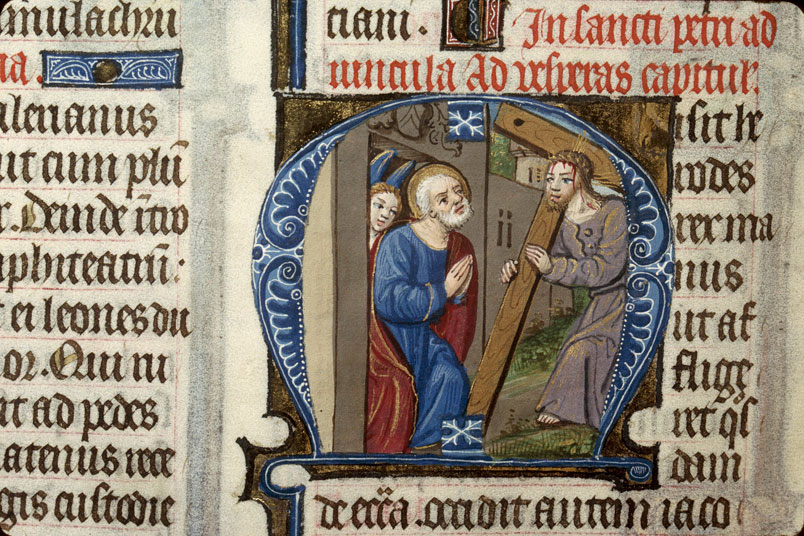 mulachru
ia.
alerianus
ut cum plū
r. Deinde īt͡io
mphiteatrū:
t ei leones du
or. Qui ru
at ad pedes
atenus rece
gis custodie
tiani.
In sancti petri ad
uincula Ad vesperas capitul'.
Misit he
rodes
rex ma
nus
ut af
flige
ret q̄s
dam
de ecc̄a. occidit autem iaco